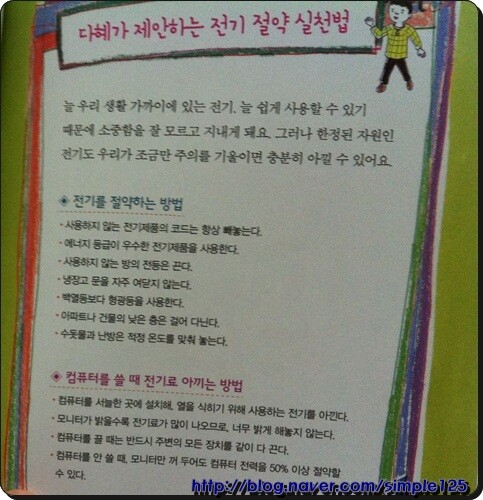 다혜가 제안하는 전기 절약 실천법
늘 우리 생활 가까이에 있는 전기. 늘 쉽게 사용할 수 있기
때문에 소중함을 잘 모르고 지내게 돼요. 그러나 한정된 자원인
전기도 우리가 조금만 주의를 기울이면 충분히 아낄 수 있어요.
◈ 전기를 절약하는 방법
· 사용하지 않는 전기제품의 코드는 항상 빼놓는다.
· 에너지 등급이 우수한 전기제품을 사용한다.
· 사용하지 않는 방의 전등은 끈다.
· 냉장고 문을 자주 여닫지 않는다.
· 백열등보다 형광등을 사용한다.
· 아파트나 건물의 낮은 층은 걸어 다닌다.
· 수돗물과 난방은 적정 온도를 맞춰 놓는다.
◈ 컴퓨터를 쓸 때 전기료 아끼는 방법
· 컴퓨터를 서늘한 곳에 설치해, 열을 식히기 위해 사용하는 전기를 아낀다.
· 모니터가 밝을수록 전기료가 많이 나오므로, 너무 밝게 해놓지 않는다.
· 컴퓨터를 끌 때는 반드시 주변의 모든 장치를 같이 다 끈다.
· 컴퓨터를 안 쓸 때, 모니터만 꺼 두어도 컴퓨터 전력을 50% 이상 절약할
수 있다.
http://blog.naver.com/simple125